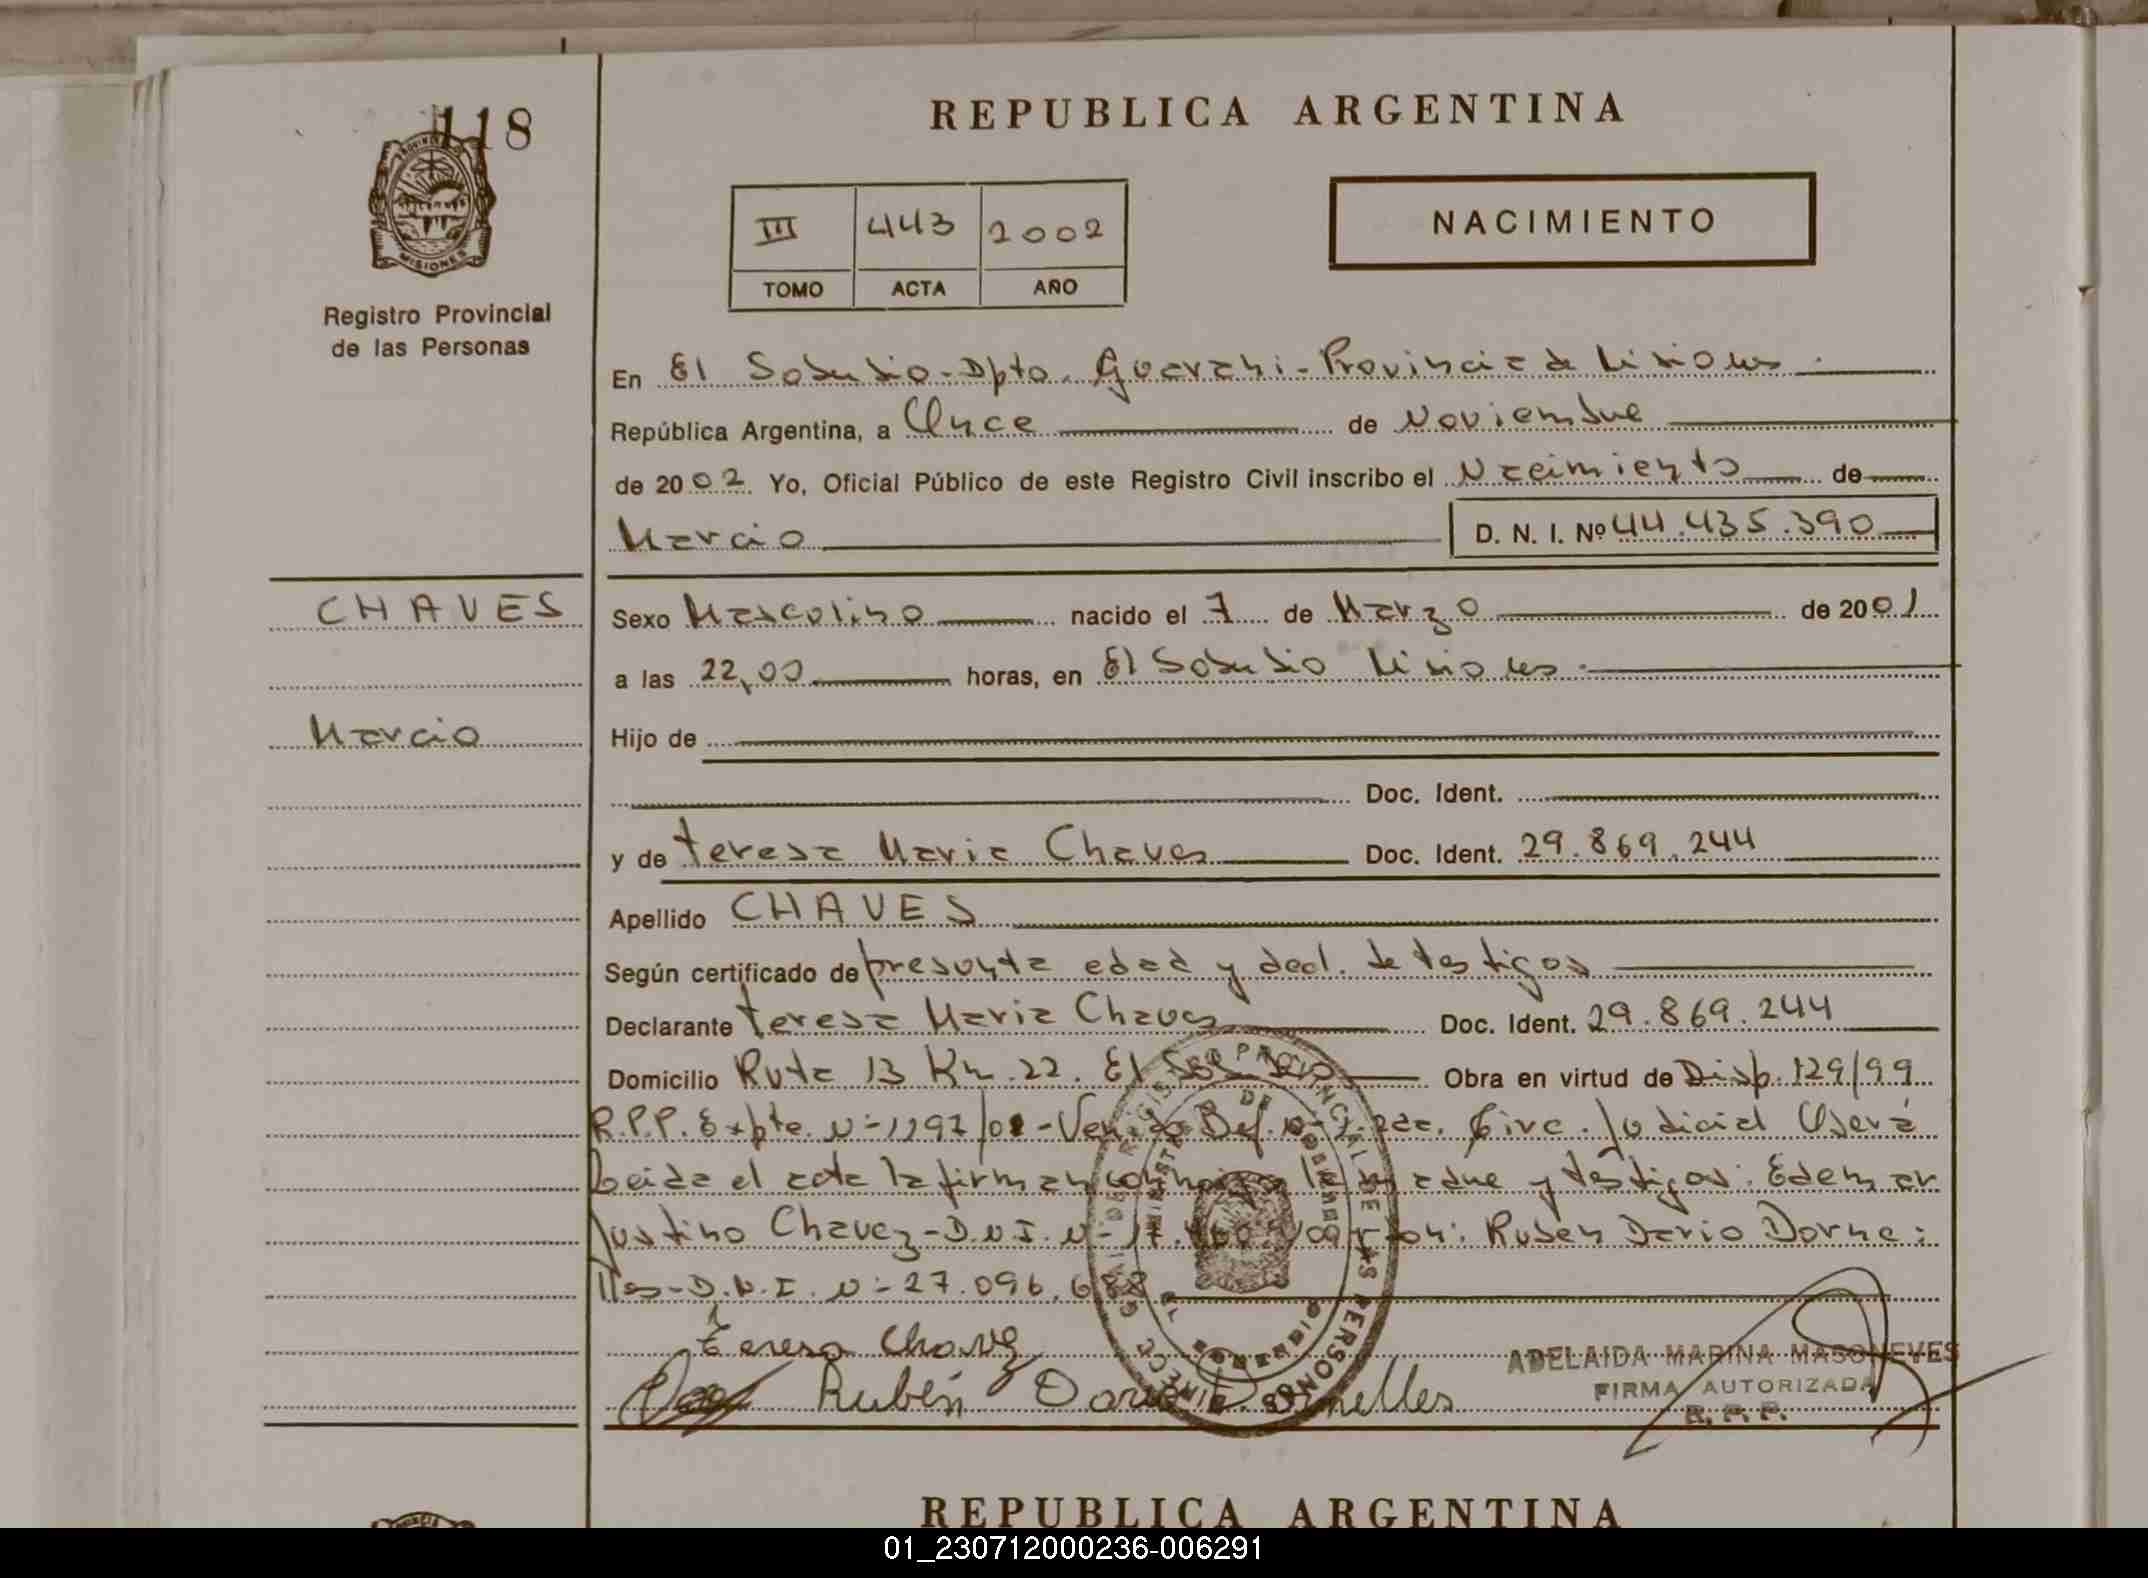 118
PROVINCIA DE
MISIONES
Registro Provincial
de las Personas
REPUBLICA ARGENTINA
III 443 2002
TOMO ACTA AÑO
NACIMIENTO
En El Soberbio - Dpto. Guarani - Provincia de Misiones.
República Argentina, a Once de Noviembre
de 2002. Yo, Oficial Público de este Registro Civil inscribo el Nacimiento de
Marcio D. N. I. Nº 44.435.390
CHAVES
Sexo Masculino nacido el 7 de Marzo de 2001
a las 22,00 horas, en El Soberbio Misiones.
Marcio
Hijo de
Doc. Ident.
y de Teresa Maria Chaves Doc. Ident. 29.869.244
Apellido CHAVES
Según certificado de presunta edad y decl. de testigos
Declarante Teresa Maria Chaves Doc. Ident. 29.869.244
Domicilio Ruta 13 Km. 22. El Soberbio Obra en virtud de Disp. 129/99
R.P.P. Expte. Nº 1197/01 - Def. Circ. Judicial Oberá
Leida el acta la firman conmigo la madre y testigos: Edemar
Justino Chavez - D.N.I. Nº 17. Ruben Dario Dorne:
lles - D.N.I. Nº 27.096.688
Teresa Chavez
Rubén Dario Dornelles
REGISTRO PROVINCIAL DE LAS PERSONAS
MINISTERIO DE GOBIERNO
EL SOBERBIO
ADELAIDA MARINA MASONEVES
FIRMA AUTORIZADA
R. P. P.
REPUBLICA ARGENTINA
01_230712000236-006291